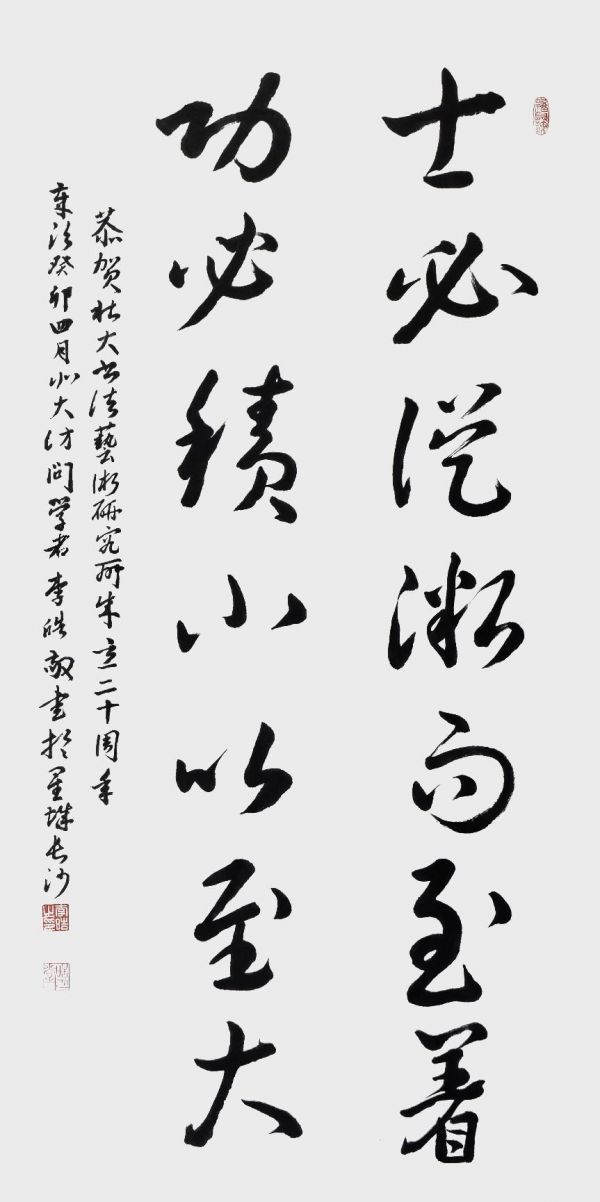 士必從漸而至着
功必積小以至大
恭賀北大書法藝術研究所成立二十周年
歲次癸卯四月北大訪問學者李皓敬書於星城長沙